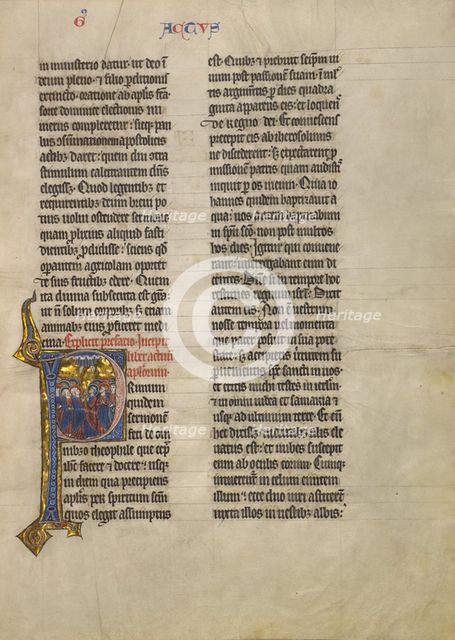 6°
ACCVS
in ministerio datur. ut deo in
deum pleno. et filio perditionis
extincto. oratione ab aplis facta
sorte domini electionis nu
merus compleretur: sicque pau
lus consummationem apostolicis
actibus daret. quem diu contra
stimulum calcitrantem dominus
elegisset. Quod legentibus et
requirentibus deum brevi po
tius volui ostendere sermone
quam prolixius aliquid fasti
dientibus prodidisse: sciens quod
operantem agricolam oporteat
de suis fructibus edere. Quem
ita divina subsecuta est gratia
ut non solum corporibus sed etiam
animabus eius proficeret medi
cina. Explicit prefatio. Incipit
liber actuum
aplorum.
PRimum
quidem
sermonem
feci de om
nibus o theophile que cepit
ihc facere et docere: usque
in diem qua precipiens
aplis per spiritum sanctum
quos elegit assumptus
est. Quibus et prebuit seipsum ui
uum post passionem suam. in mul
tis argumentis per dies quadra
ginta apparens eis. et loquens
de regno dei. Et convescens
precepit eis ab iherosolimis
ne discederent: sed expectarent pro
missionem patris quam audistis
inquit per os meum. Quia io
hannes quidem baptizavit a
qua: vos autem baptizabimini
in spiritu sancto. non post multos
hos dies. Igitur qui convene
rant: interrogabant eum di
centes. Domine si in tempore hoc
restitues regnum israel? Dixit
autem eis. Non est vestrum
nosse tempora vel momenta
que pater posuit in sua pote
state: sed accipietis virtutem su
pervenientis spiritus sancti in vos:
et eritis michi testes in ierusalem
et in omni iudea et samaria et
usque ad ultimum terre. Et cum
hec dixisset: videntibus illis ele
vatus est: et nubes suscepit
eum ab oculis eorum. Cumque
intuerentur in celum euntem
illum: ecce duo viri astiterunt
iuxta illos in vestibus albis:
Heritage